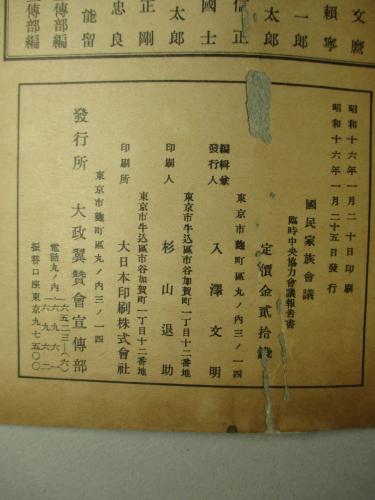 文麿
賴寧
一郎
太郎
信正
國士
太郎
正剛
忠良
能留
傳部編
宣傳部編
昭和十六年一月二十日印刷
昭和十六年一月二十五日發行
國民家族會議
臨時中央協力會議報告書
定價金貳拾錢
東京市麴町區丸ノ內三ノ一四
編輯兼
發行人 入澤文明
東京市牛込區市谷加賀町一丁目十二番地
印刷人 杉山退助
東京市牛込區市谷加賀町一丁目十二番地
印刷所 大日本印刷株式會社
東京市麴町區丸ノ內三ノ一四
發行所 大政翼贊會宣傳部
電話丸ノ內
六五二三—(六)
振替口座東京九七五〇〇